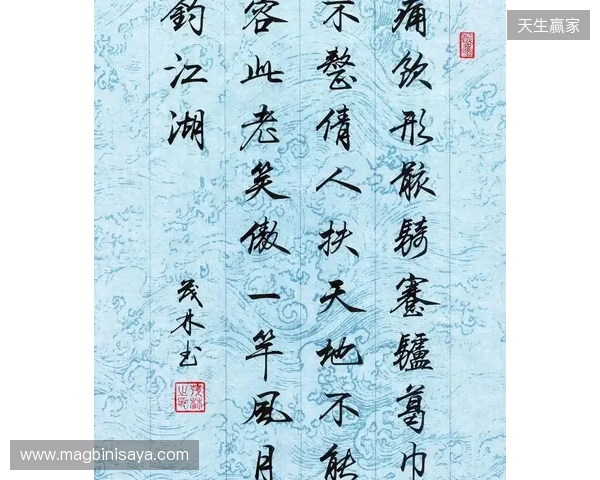 天生赢家
痛飲形骸騎蹇驢葛巾
不整倩人扶天地不能
容此老笑傲一竿風月
釣江湖
茂林书
www.magbinisaya.com